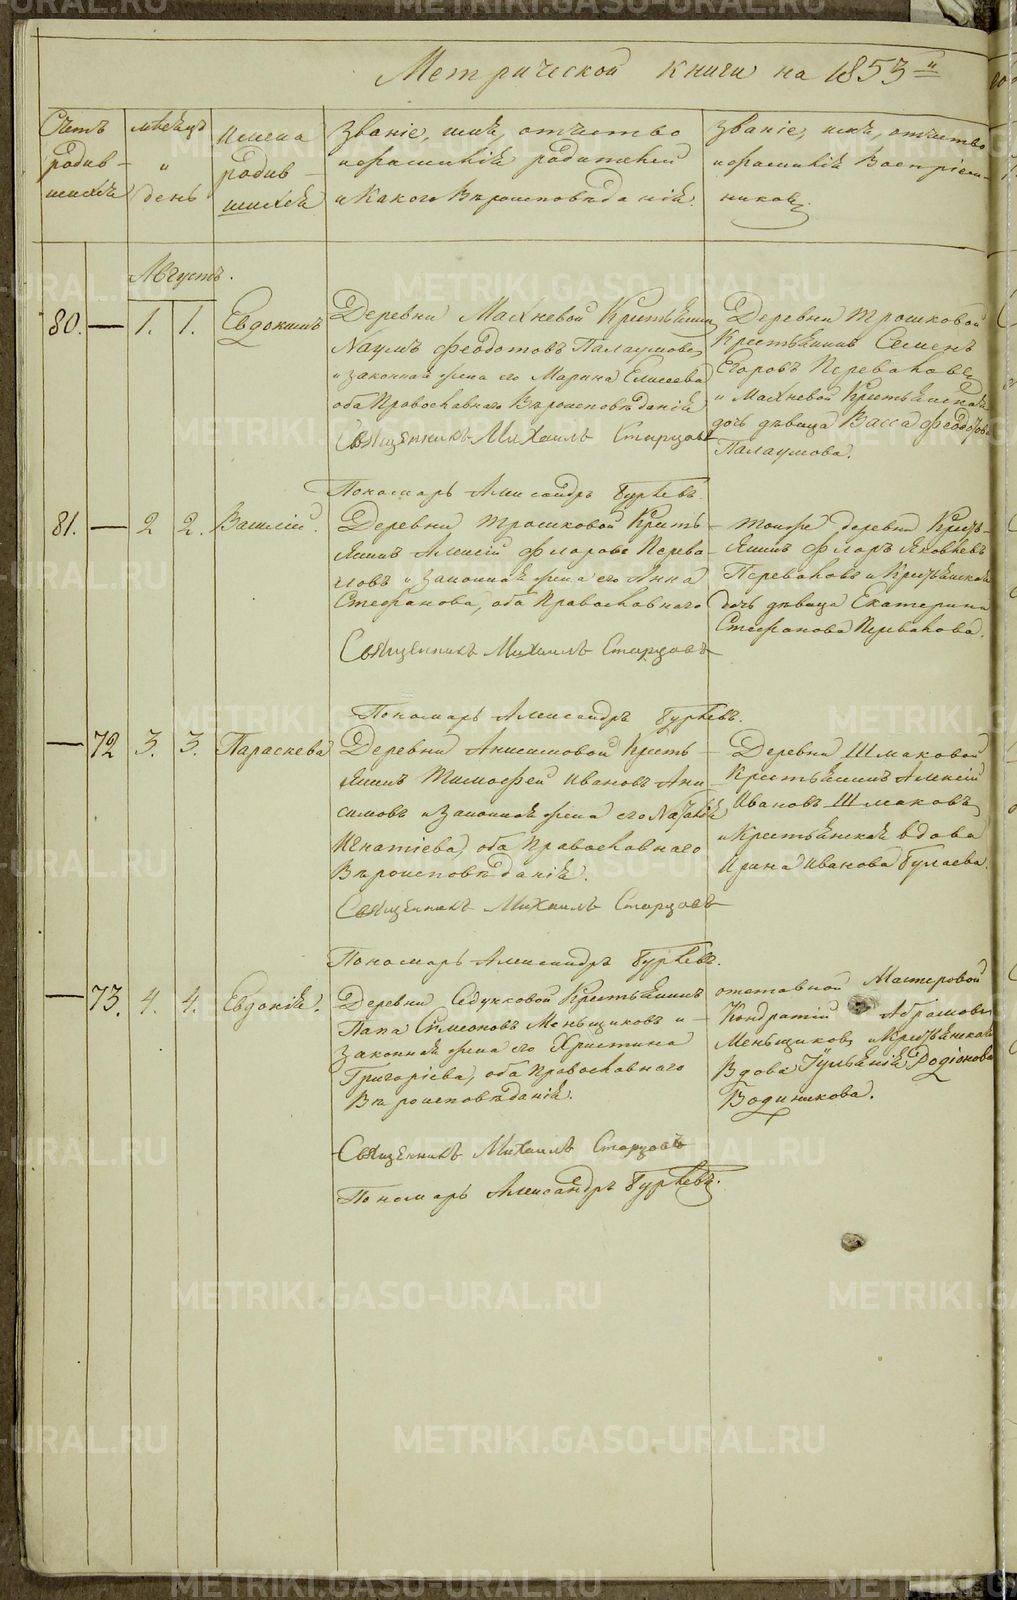 Метрической книги на 1853й
Счетъ родив-шихся
месяцъ и день
Имена родив-шихся
Званіе, имя, отчество
и фамилія родителей
и какого вероисповеданія.
Званіе, имя, отчество
и фамилія Воспріем-
никовъ.
Августъ.
80. — 1. 1. Евдокимъ
Деревни Махневой Крестьянинъ
Наумъ Феодотовъ Палаумовъ
и законная жена его Марина Елисеева
оба Православнаго Вероисповеданія
Священникъ Михаилъ Старцовъ
Пономарь Александръ Гурьевъ.
Деревни Трошковой
Крестьянинъ Семенъ
Егоровъ Переваловъ
и Махневой Крестьянская
дочь девица Васса Феодотова
Палаумова.
81. — 2 2. Василій.
Деревни Трошковой Кресть-
янинъ Алексій Флоровъ Перева-
ловъ и Законная жена его Анна
Стефанова, оба Православнаго
Священникъ Михаилъ Старцовъ
Пономарь Александръ Гурьевъ.
тойже деревни Кресть-
янинъ Флоръ Яковлевъ
Переваловъ и Крестьянская
дочь девица Екатерина
Стефанова Перевалова.
— 72 3. 3. Параскева
Деревни Анисимовой Кресть-
янинъ Тимофей Ивановъ Ани-
симовъ и Законная жена его Наталья
Игнатіева, оба Православнаго
Вероисповеданія.
Священникъ Михаилъ Старцовъ
Пономарь Александръ Гурьевъ.
Деревни Шмаковой
Крестьянинъ Алексій
Ивановъ Шмаковъ
и Крестьянская вдова
Ирина Иванова Булаева.
— 73. 4. 4. Евдокія.
Деревни Седучковой Крестьянинъ
Папа Симеоновъ Меньщиковъ и
Законная жена его Христина
Григоріева, оба Православнаго
Вероисповеданія.
Священникъ Михаилъ Старцовъ
Пономарь Александръ Гурьевъ.
отставной Мастеровой
Кондратій Абрамовъ
Меньщиковъ и Крестьянская
Вдова Іульянія Родіонова
Водиникова.
METRIKI.GASO-URAL.RU